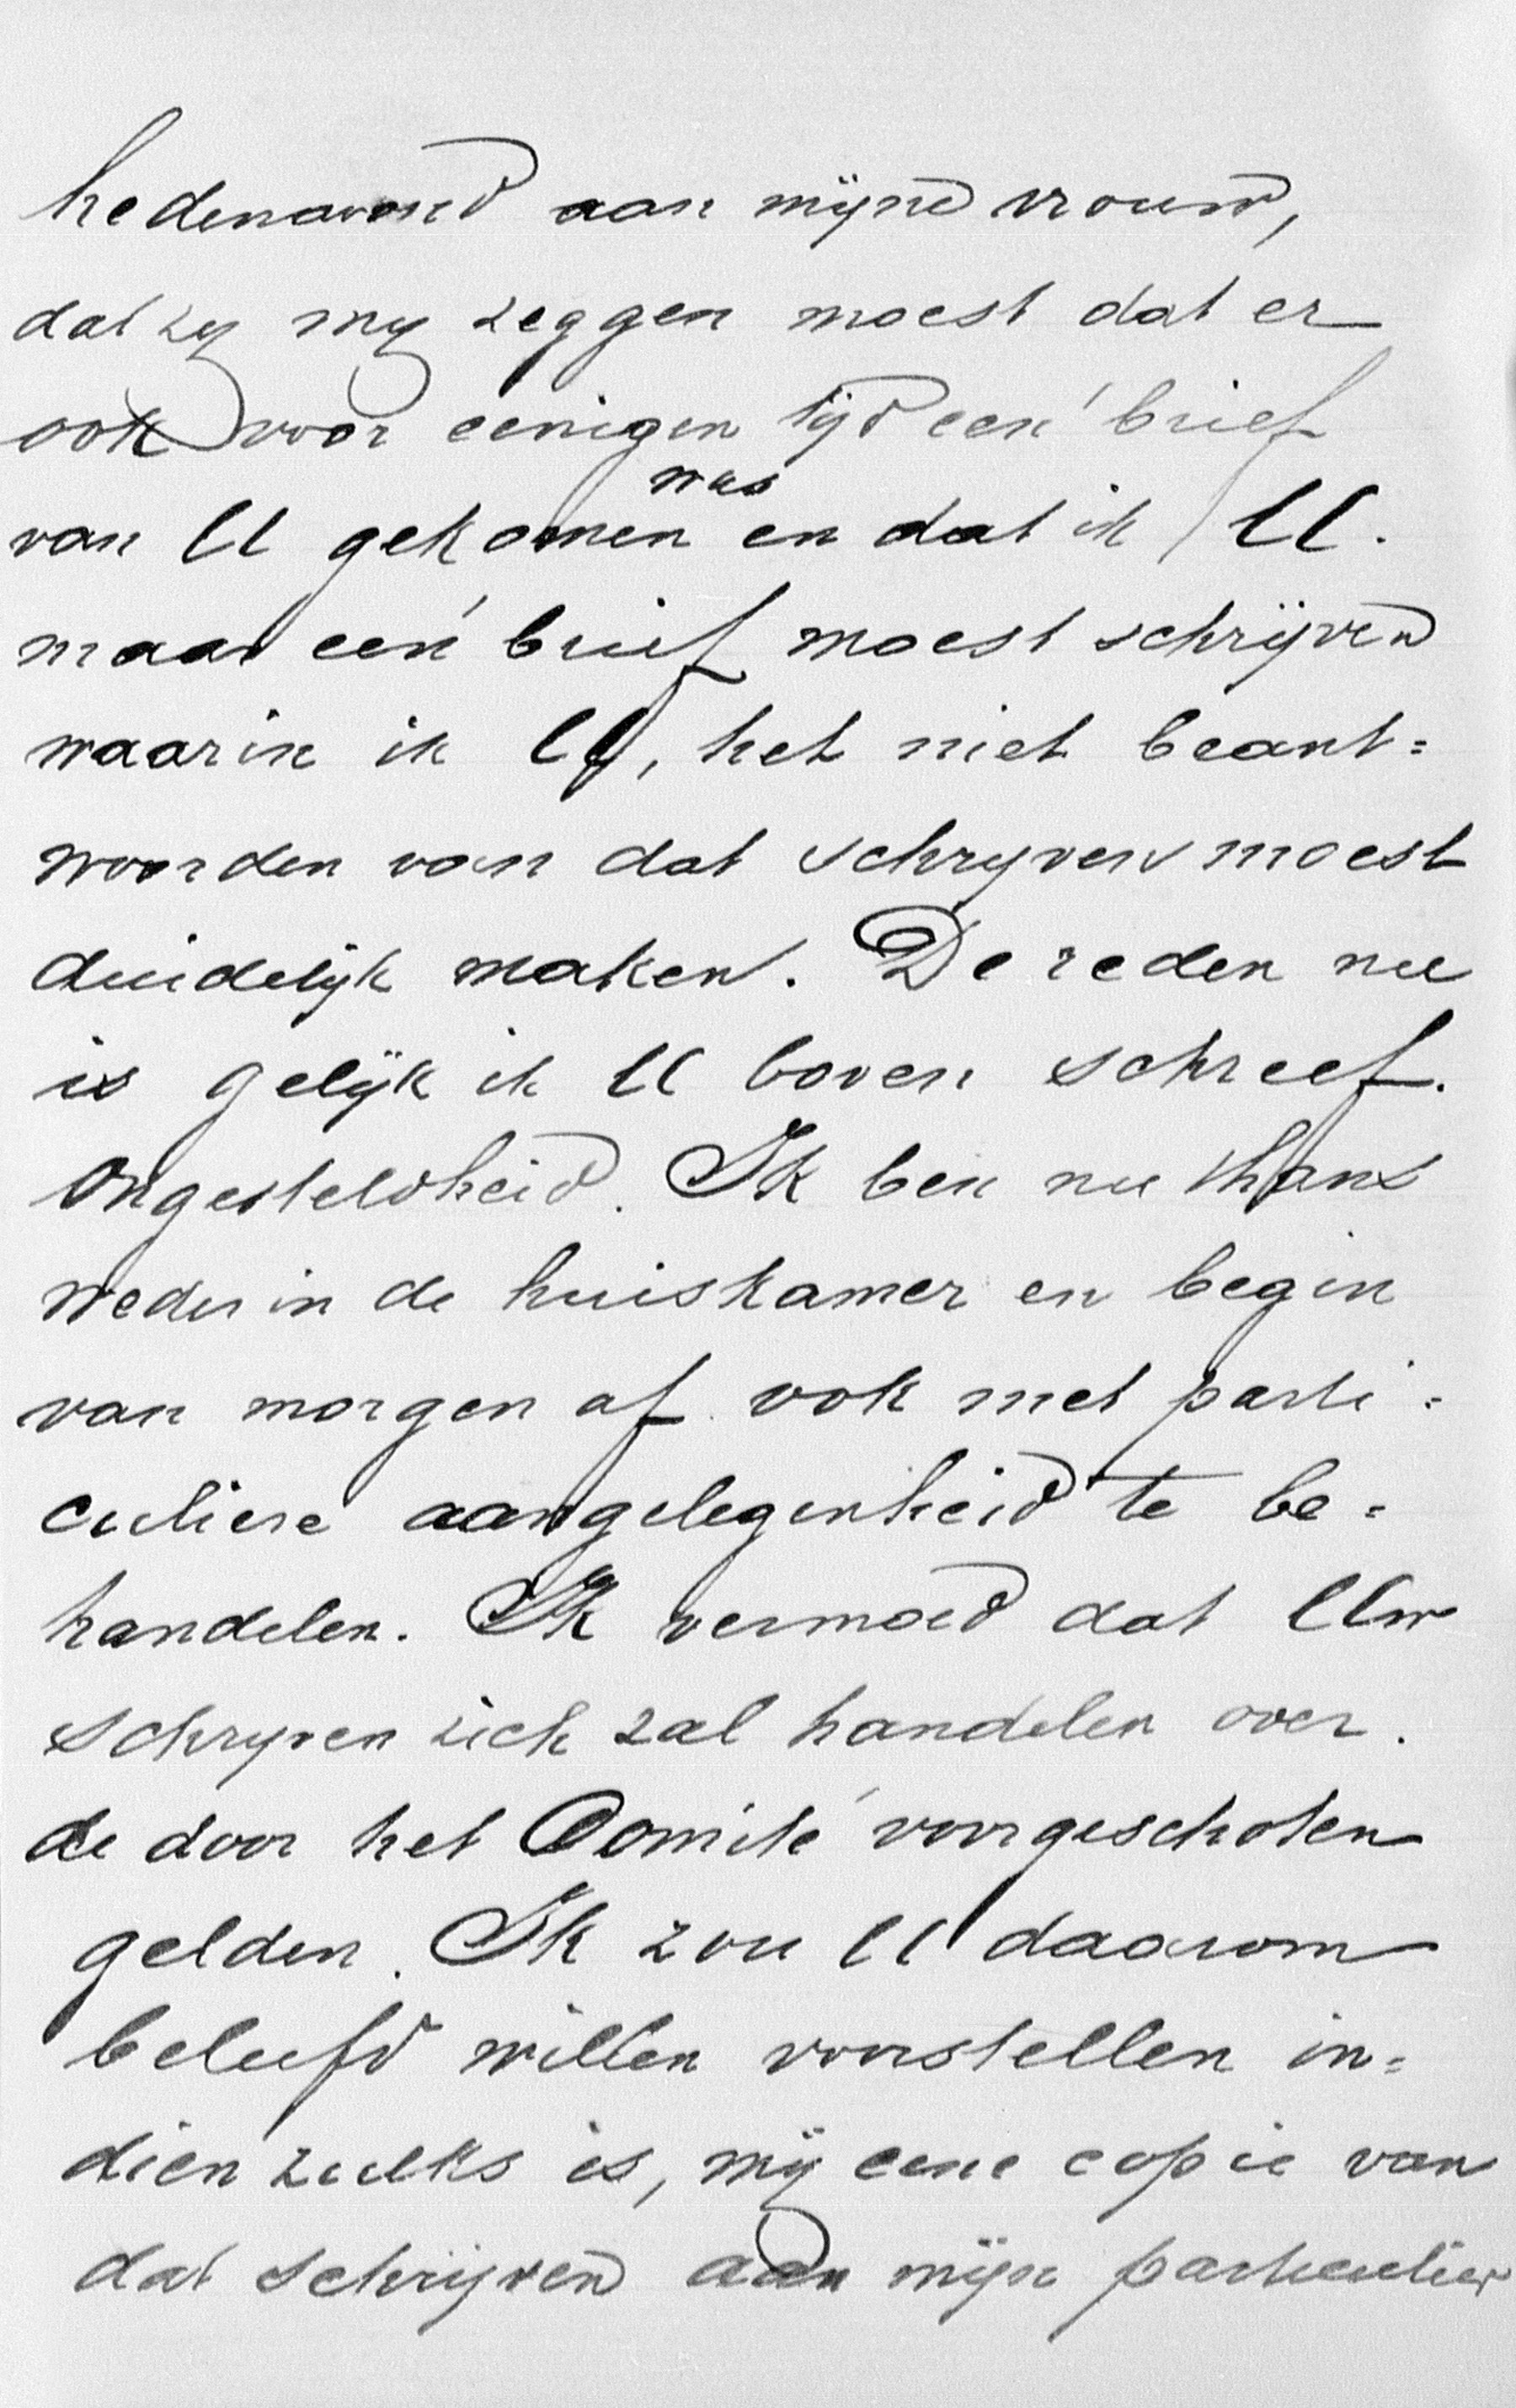 hedenavond aan mijne vrouw,
dat zy my zeggen moest dat er
ook voor eenigen tijd een brief
was
van U gekomen en dat ik U.
maar een brief moest schrijven
waarin ik U, het niet beant=
woorden van dat schryven moest
duidelijk maken. De reden nu
is gelijk ik U boven schreef.
Ongesteldheid. Ik ben nu thans
weder in de huiskamer en begin
van morgen af ook met parti=
culiere aangelegenheid te be=
handelen. Ik vermoed dat Uw
schryven zich zal handelen over.
de door het Comité voorgeschoten
gelden. Ik zou U daarom
beleefd willen voorstellen in=
dien zulks is, mij eene copie van
dat schrijven aan mijn particulier